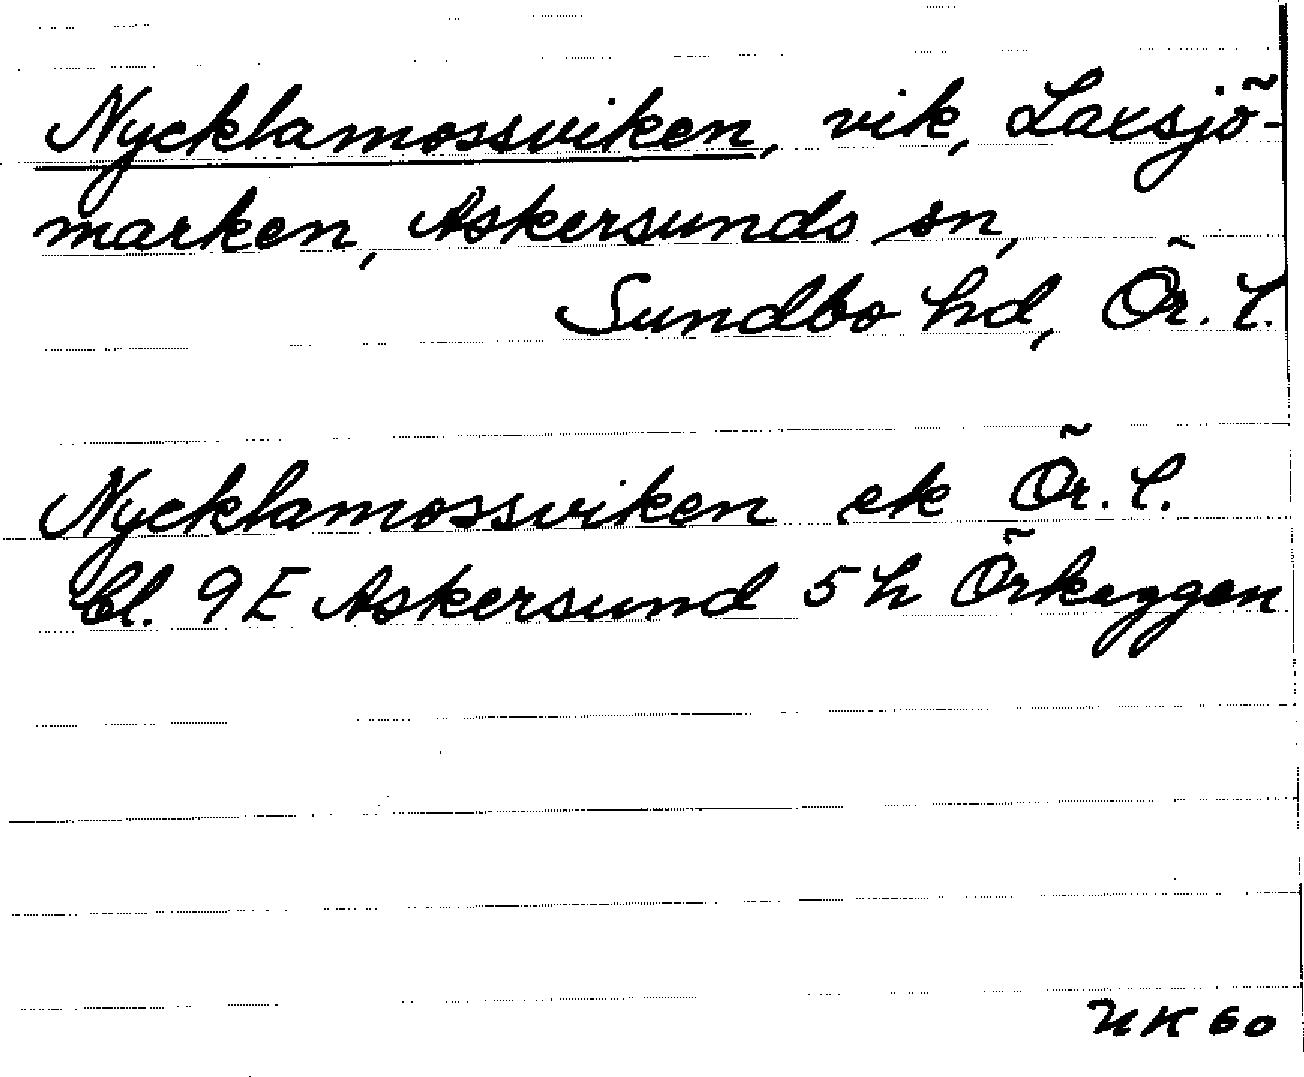 Nycklamossviken, vik, Laxsjö-
marken, Askersunds sn,
Sundbo hd, Ör. l.
Nycklamossviken ek Ör. l.
bl. 9E Askersund 5h Örkaggen
NK 60